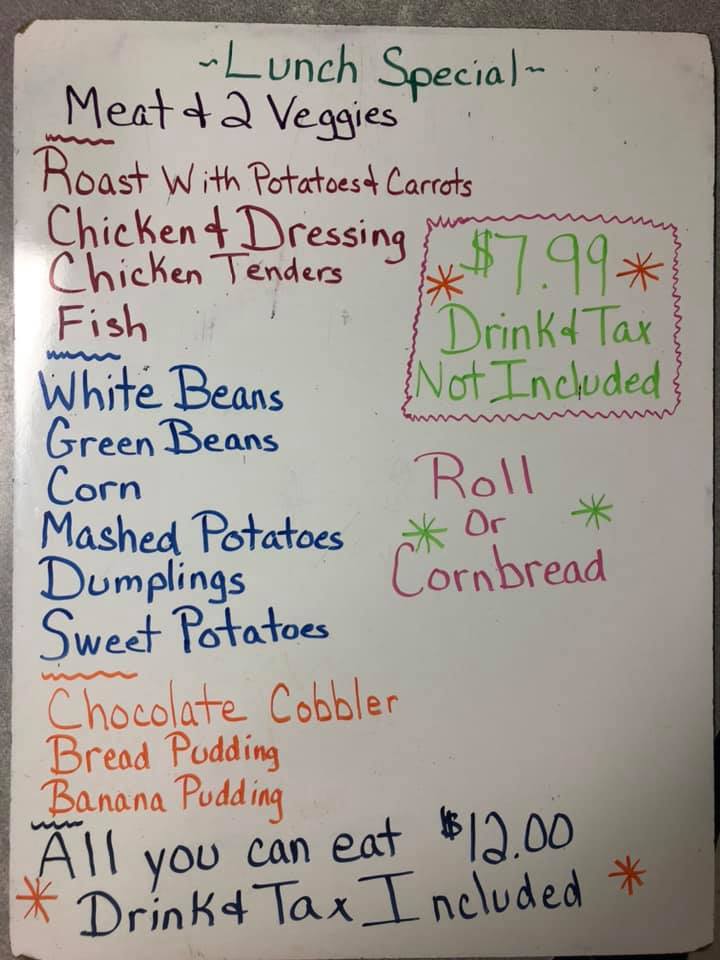 ~Lunch Special~
Meat & 2 Veggies
Roast With Potatoes & Carrots
Chicken & Dressing
Chicken Tenders
Fish
$7.99
Drink & Tax
Not Included
White Beans
Green Beans
Corn
Mashed Potatoes
Dumplings
Sweet Potatoes
Roll
Or
Cornbread
Chocolate Cobbler
Bread Pudding
Banana Pudding
All you can eat $12.00
Drink & Tax Included